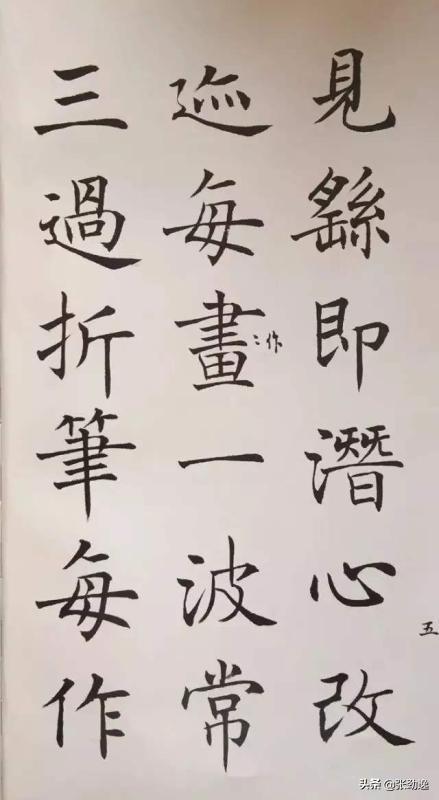 見繇即潛心改
迹每畫一波常
〻作
三過折筆每作
五
头条 @张劲逸